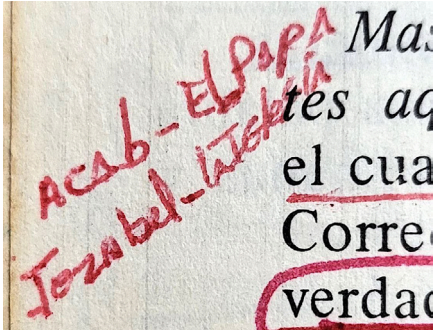 Acab - El PAPA
Jezabel - La Iglesia
Mas
tes aq
el cua
Corre
verdad